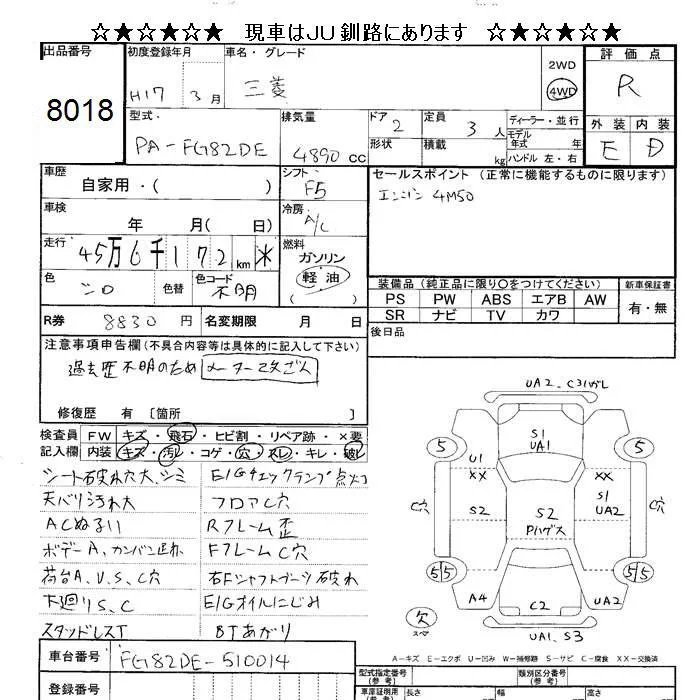 ☆★☆★☆★ 現車はJU釧路にあります ☆★☆★☆★
出品番号
8018
初度登録年月
H17 3月
車名・グレード
三菱
2WD
4WD
評価点
R
外装 内装
E D
型式.
PA-FG82DE
排気量
4890 cc
ドア 2
形状
定員 3人
積載 kg
ディーラー・並行
モデル年式 年
ハンドル 左・右
車歴
自家用・( )
シフト
F5
セールスポイント (正常に機能するものに限ります)
エンジン 4M50
車検
年 月( 日)
冷房
A/C
走行
45万6千172km *
燃料
ガソリン
軽油
( )
色
シロ
色替
色コード
不明
装備品(純正品に限り○をつけてください)
PS PW ABS エアB AW
SR ナビ TV カワ
新車保証書
有・無
R券 8830円
名変期限 月 日
後日品
注意事項申告欄(不具合内容等は具体的に記入して下さい)
過去歴不明のため メーター改ざん
修復歴 有 〔箇所 〕
検査員記入欄
FW キズ・飛石・ヒビ割・リペア跡・×要
内装 キズ・汚レ・コゲ・穴・スレ・キレ・破レ
シート破れ穴大、シミ
E/Gチェックランプ点灯
天バリ汚れ大
フロアC穴
ACぬるい
Rフレーム歪
ボデーA、カンバン跡
FフレームC穴
荷台A、U、S、C穴
右Fシャフトブーツ破れ
下廻りS、C
E/Gオイルにじみ
スタッドレスT
BTあがり
UA2、C3ハガレ
S1
UA1
5
5
U1
XX
XX
C穴
S2
S2
Pハゲス
S1
UA2
C穴
5 5
5 5
A4
C2
UA2
欠
スペア
UA1、S3
A-キズ E-エクボ U-凹み W-補修跡 S-サビ C-腐食 XX-交換済
車台番号
FG82DE-510014
登録番号
型式指定番号
(参考)
類別区分番号
(参考)
車庫証明用
(参考)
長さ
幅
高さ